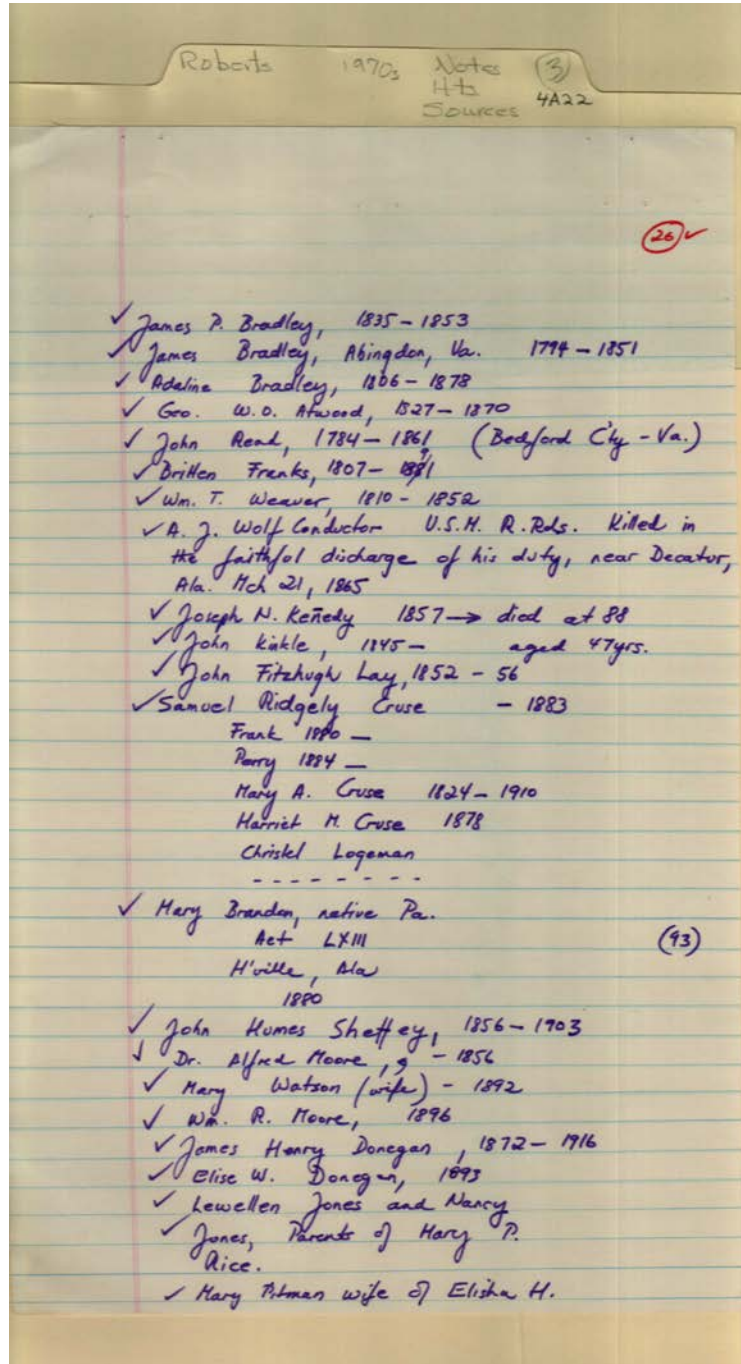 Roberts 1970s Notes (3)
Hts 4A22
Sources
(26) ✓
✓ James P. Bradley, 1835 - 1853
✓ James Bradley, Abingdon, Va. 1794 - 1851
✓ Adaline Bradley, 1806 - 1878
✓ Geo. W.O. Atwood, 1827 - 1870
✓ John Read, 1784 - 1861 (Bedford C'ty - Va.)
✓ Britten Franks, 1807 -
✓ Wm. T. Weaver, 1810 - 1852
✓ A. J. Wolf Conductor U.S.M. R.Rds. Killed in
the faithful discharge of his duty, near Decatur,
Ala. Mch 21, 1865
✓ Joseph N. Keñedy 1857 → died at 88
✓ John Kinkle, 1845 - aged 47yrs.
✓ John Fitzhugh Lay, 1852 - 56
✓ Samuel Ridgely Cruse - 1883
Frank 1880 -
Perry 1884 -
Mary A. Cruse 1824 - 1910
Harriet M. Cruse 1878
Christel Logeman
- - - - - - - - -
✓ Mary Brandon, native Pa.
Aet LXIII (93)
H'ville, Ala
1880
✓ John Humes Sheffey, 1856 - 1903
✓ Dr. Alfred Moore, - 1856
✓ Mary Watson (wife) - 1892
✓ Wm. R. Moore, 1896
✓ James Henry Donegan, 1872 - 1916
✓ Elise W. Donegan, 1893
✓ Lewellen Jones and Nancy
✓ Jones, Parents of Mary P.
Rice.
✓ Mary Pitman wife of Elisha H.